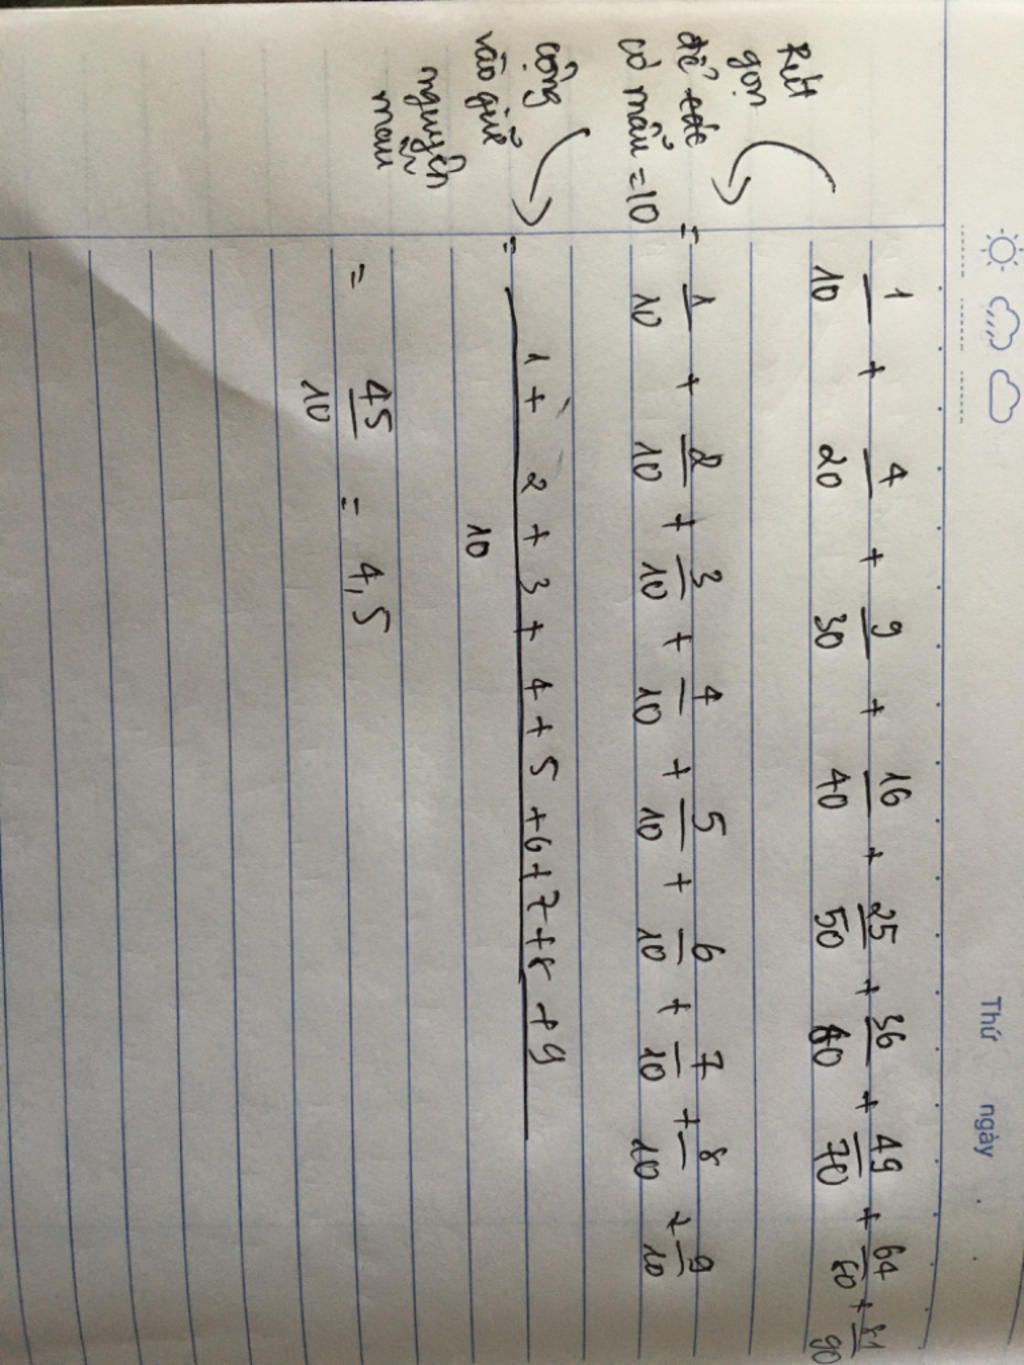 Thứ ngày
1/10 + 4/20 + 9/30 + 16/40 + 25/50 + 36/60 + 49/70 + 64/80 + 81/90
Rút
gọn
để các
có mẫu = 10
= 1/10 + 2/10 + 3/10 + 4/10 + 5/10 + 6/10 + 7/10 + 8/10 + 9/10
cộng
vào giữ
nguyên
mẫu
= 1 + 2 + 3 + 4 + 5 + 6 + 7 + 8 + 9
10
= 45/10 = 4,5